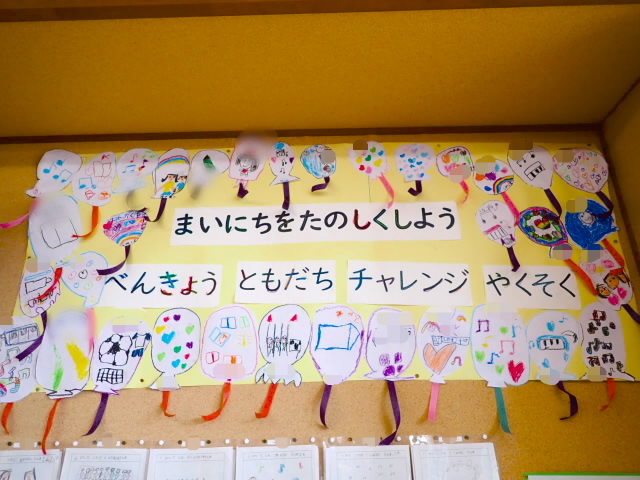 まいにちをたのしくしよう
べんきょう ともだち チャレンジ やくそく